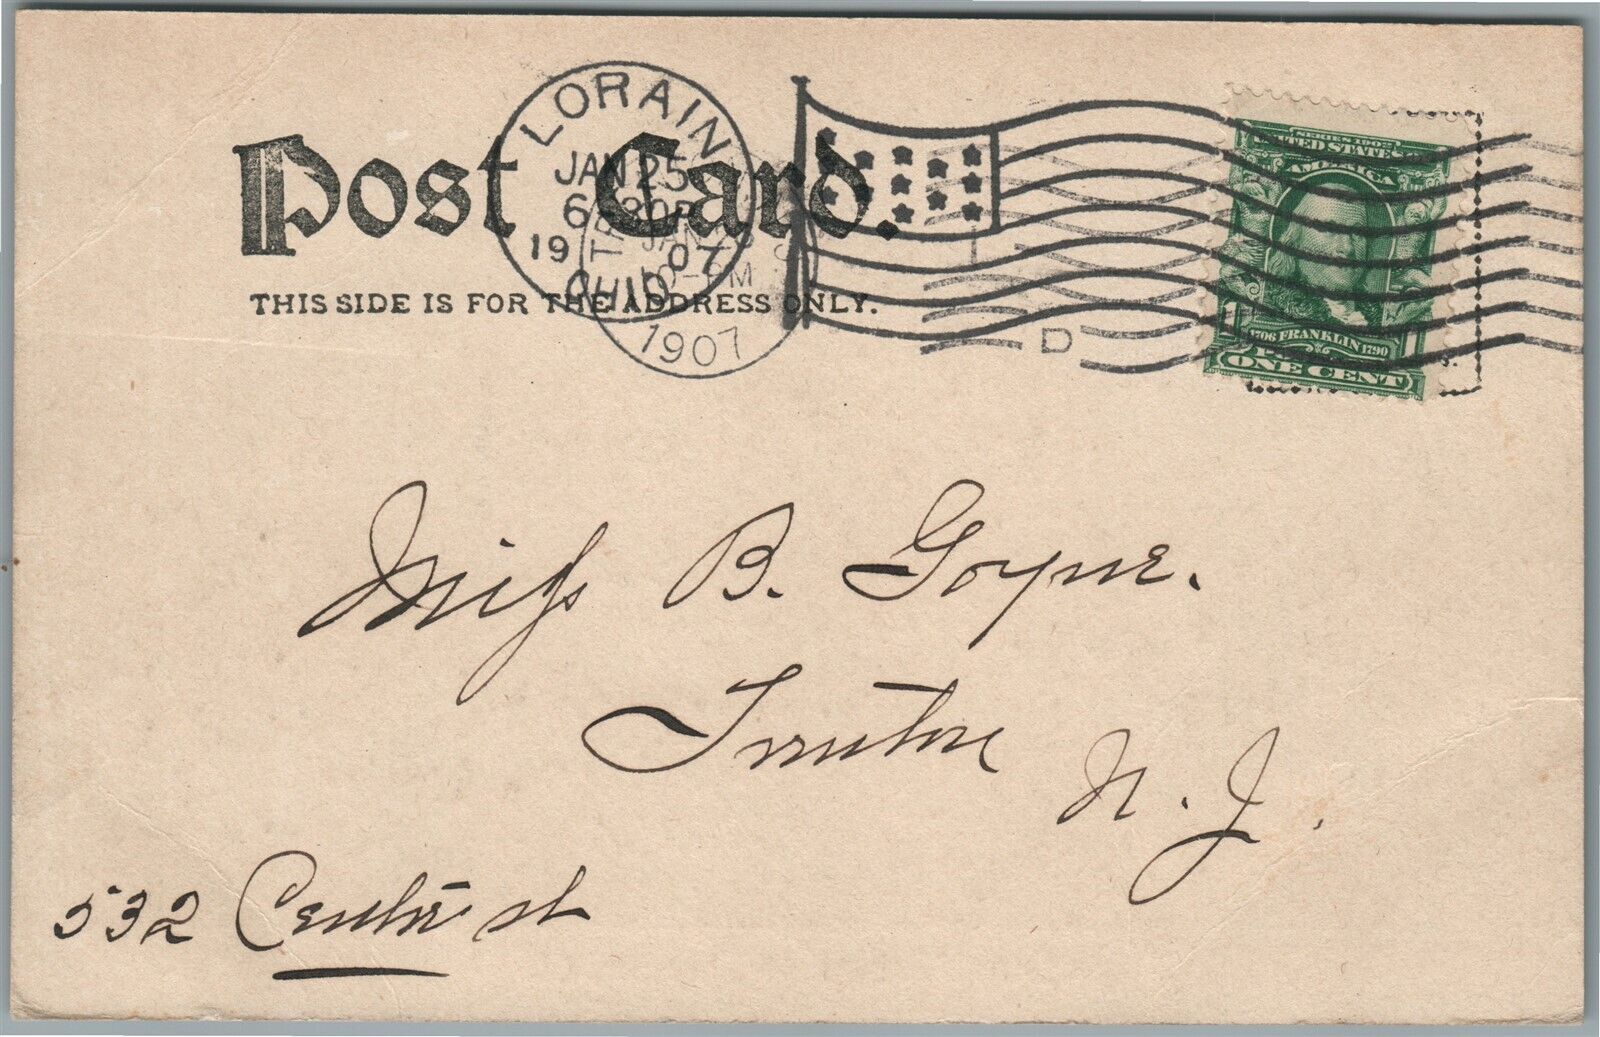 Post Card.
THIS SIDE IS FOR THE ADDRESS ONLY.
LORAIN
JAN 25
630P
1907
OHIO
JAN
M
1907
D
SERIES 1902
UNITED STATES OF AMERICA
1706 FRANKLIN 1790
1 1
ONE CENT
Miss B. Goyne.
Trenton
N. J.
532 Centre st